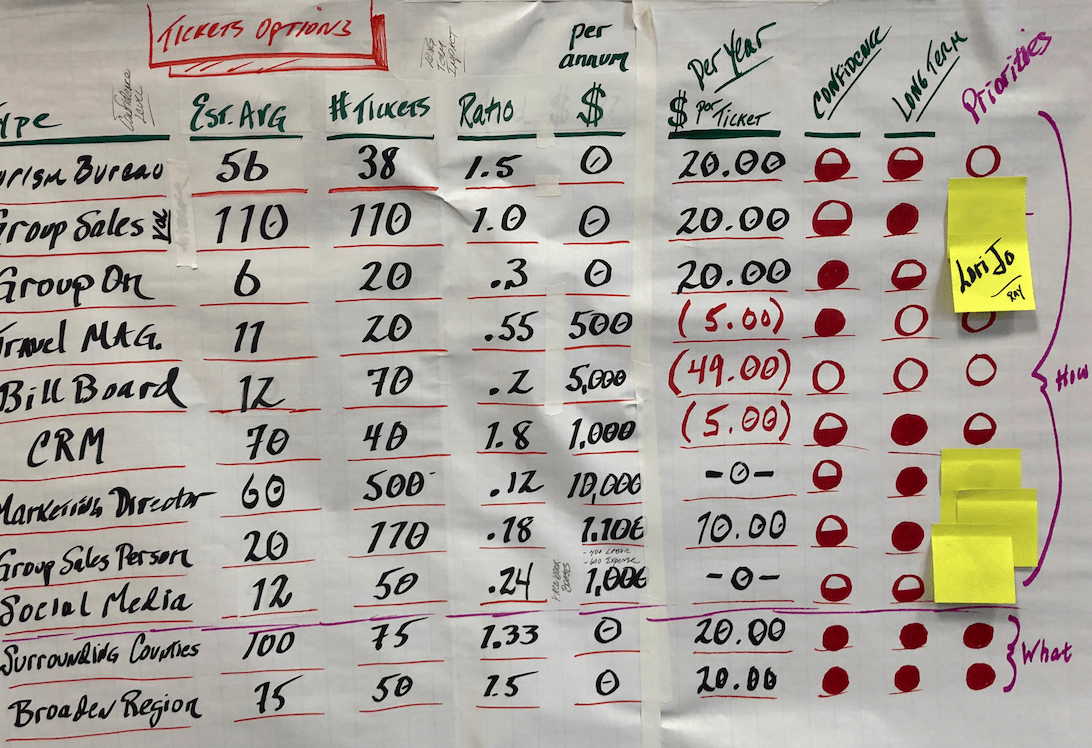 Tickets Options
Long Term Impact
Confidence Level
ype Est. Avg # Tickets Ratio per annum $ Per Year $ per Ticket Confidence Long Term Priorities
urism Bureau 56 38 1.5 0 20.00
Group Sales 110 110 1.0 0 20.00
Group On 6 20 .3 0 20.00
Lori Jo
Ray
Travel MAG. 11 20 .55 500 (5.00)
Bill Board 12 70 .2 5,000 (49.00)
How
CRM 70 40 1.8 1,000 (5.00)
Marketing Director 60 500 .12 10,000 -0-
Group Sales Person 20 110 .18 1,100 10.00
-400 Labor
-600 Expense
Social Media 12 50 .24 1,000 -0-
Surrounding Counties 100 75 1.33 0 20.00
What
Broaden Region 75 50 1.5 0 20.00